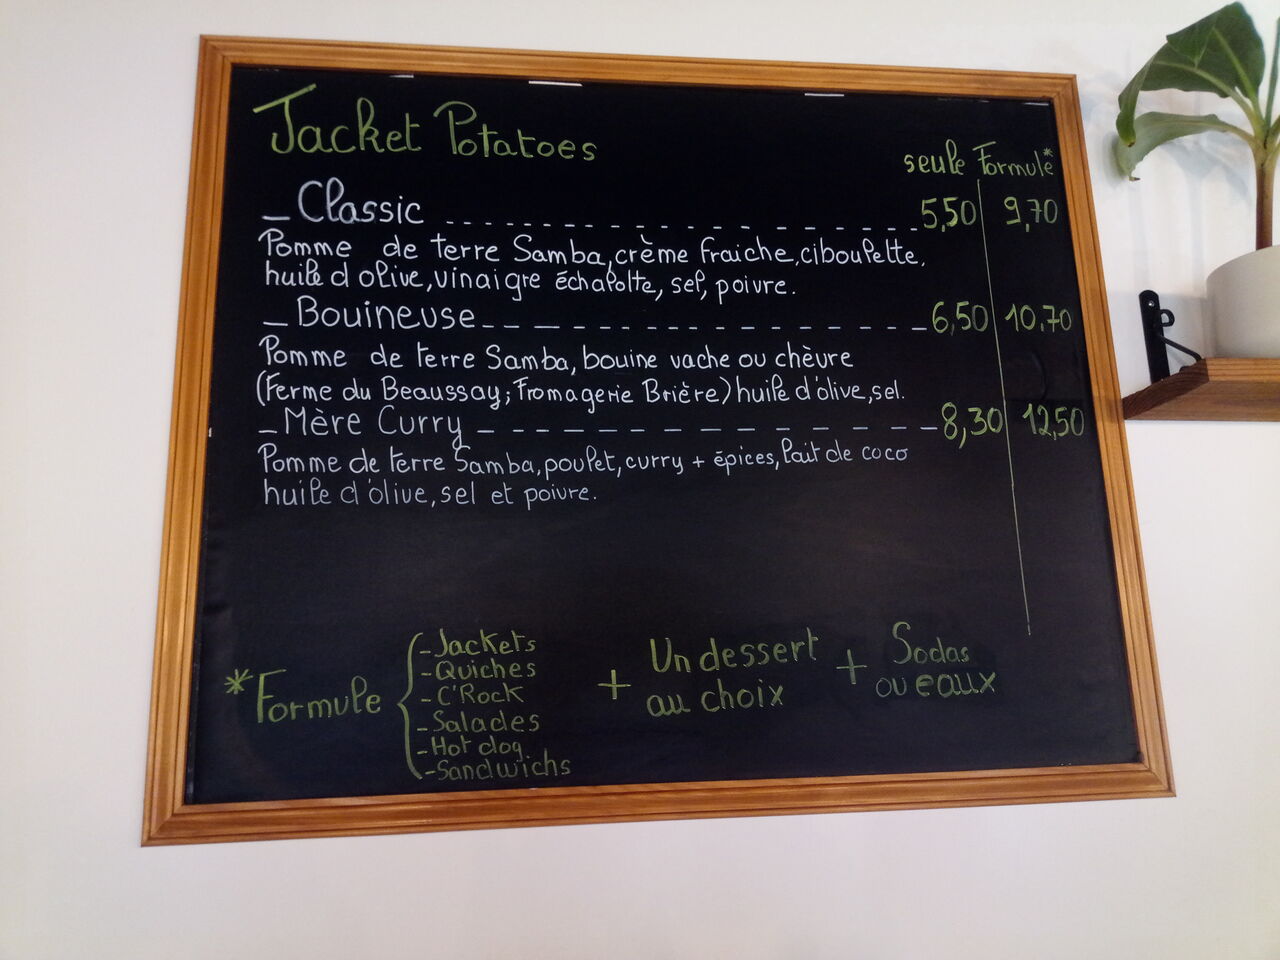 Jacket Potatoes
seule Formule*
_ Classic -------------------- 5,50 9,70
Pomme de terre Samba, crème fraiche, ciboulette,
huile d olive, vinaigre échalolte, sel, poivre.
_ Bouineuse -------------------- 6,50 10,70
Pomme de terre Samba, bouine vache ou chèvre
(Ferme du Beaussay; Fromagerie Brière) huile d'olive, sel.
_ Mère Curry -------------------- 8,30 12,50
Pomme de terre Samba, poulet, curry + épices, lait de coco
huile d'olive, sel et poivre.
*Formule { - Jackets
- Quiches
- C'Rock
- Salades
- Hot dog.
- Sandwichs
+ Un dessert
au choix
+ Sodas
ou eaux